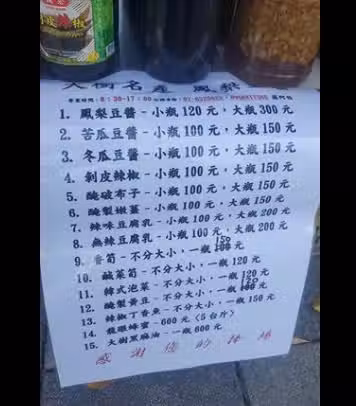 剝皮辣椒
大樹名產 鳳梨
營業時間：8：30-17：00
1. 鳳梨豆醬－小瓶120元，大瓶300元
2. 苦瓜豆醬－小瓶100元，大瓶150元
3. 冬瓜豆醬－小瓶100元，大瓶150元
4. 剝皮辣椒－小瓶100元，大瓶150元
5. 醃破布子－小瓶100元，大瓶150元
6. 醃製嫩薑－小瓶100元，大瓶150元
7. 辣味豆腐乳－小瓶100元，大瓶200元
8. 無辣豆腐乳－小瓶100元，大瓶200元
9. 香筍－不分大小，一瓶150元
10. 鹹菜筍－不分大小，一瓶120元
11. 韓式泡菜－不分大小，一瓶120元
12. 醃製黃豆－不分大小，一瓶150元
13. 辣椒丁香魚－不分大小，一瓶150元
14. 龍眼蜂蜜－600元（5台斤）
15. 大樹黑麻油－一瓶600元
感謝您的捧場